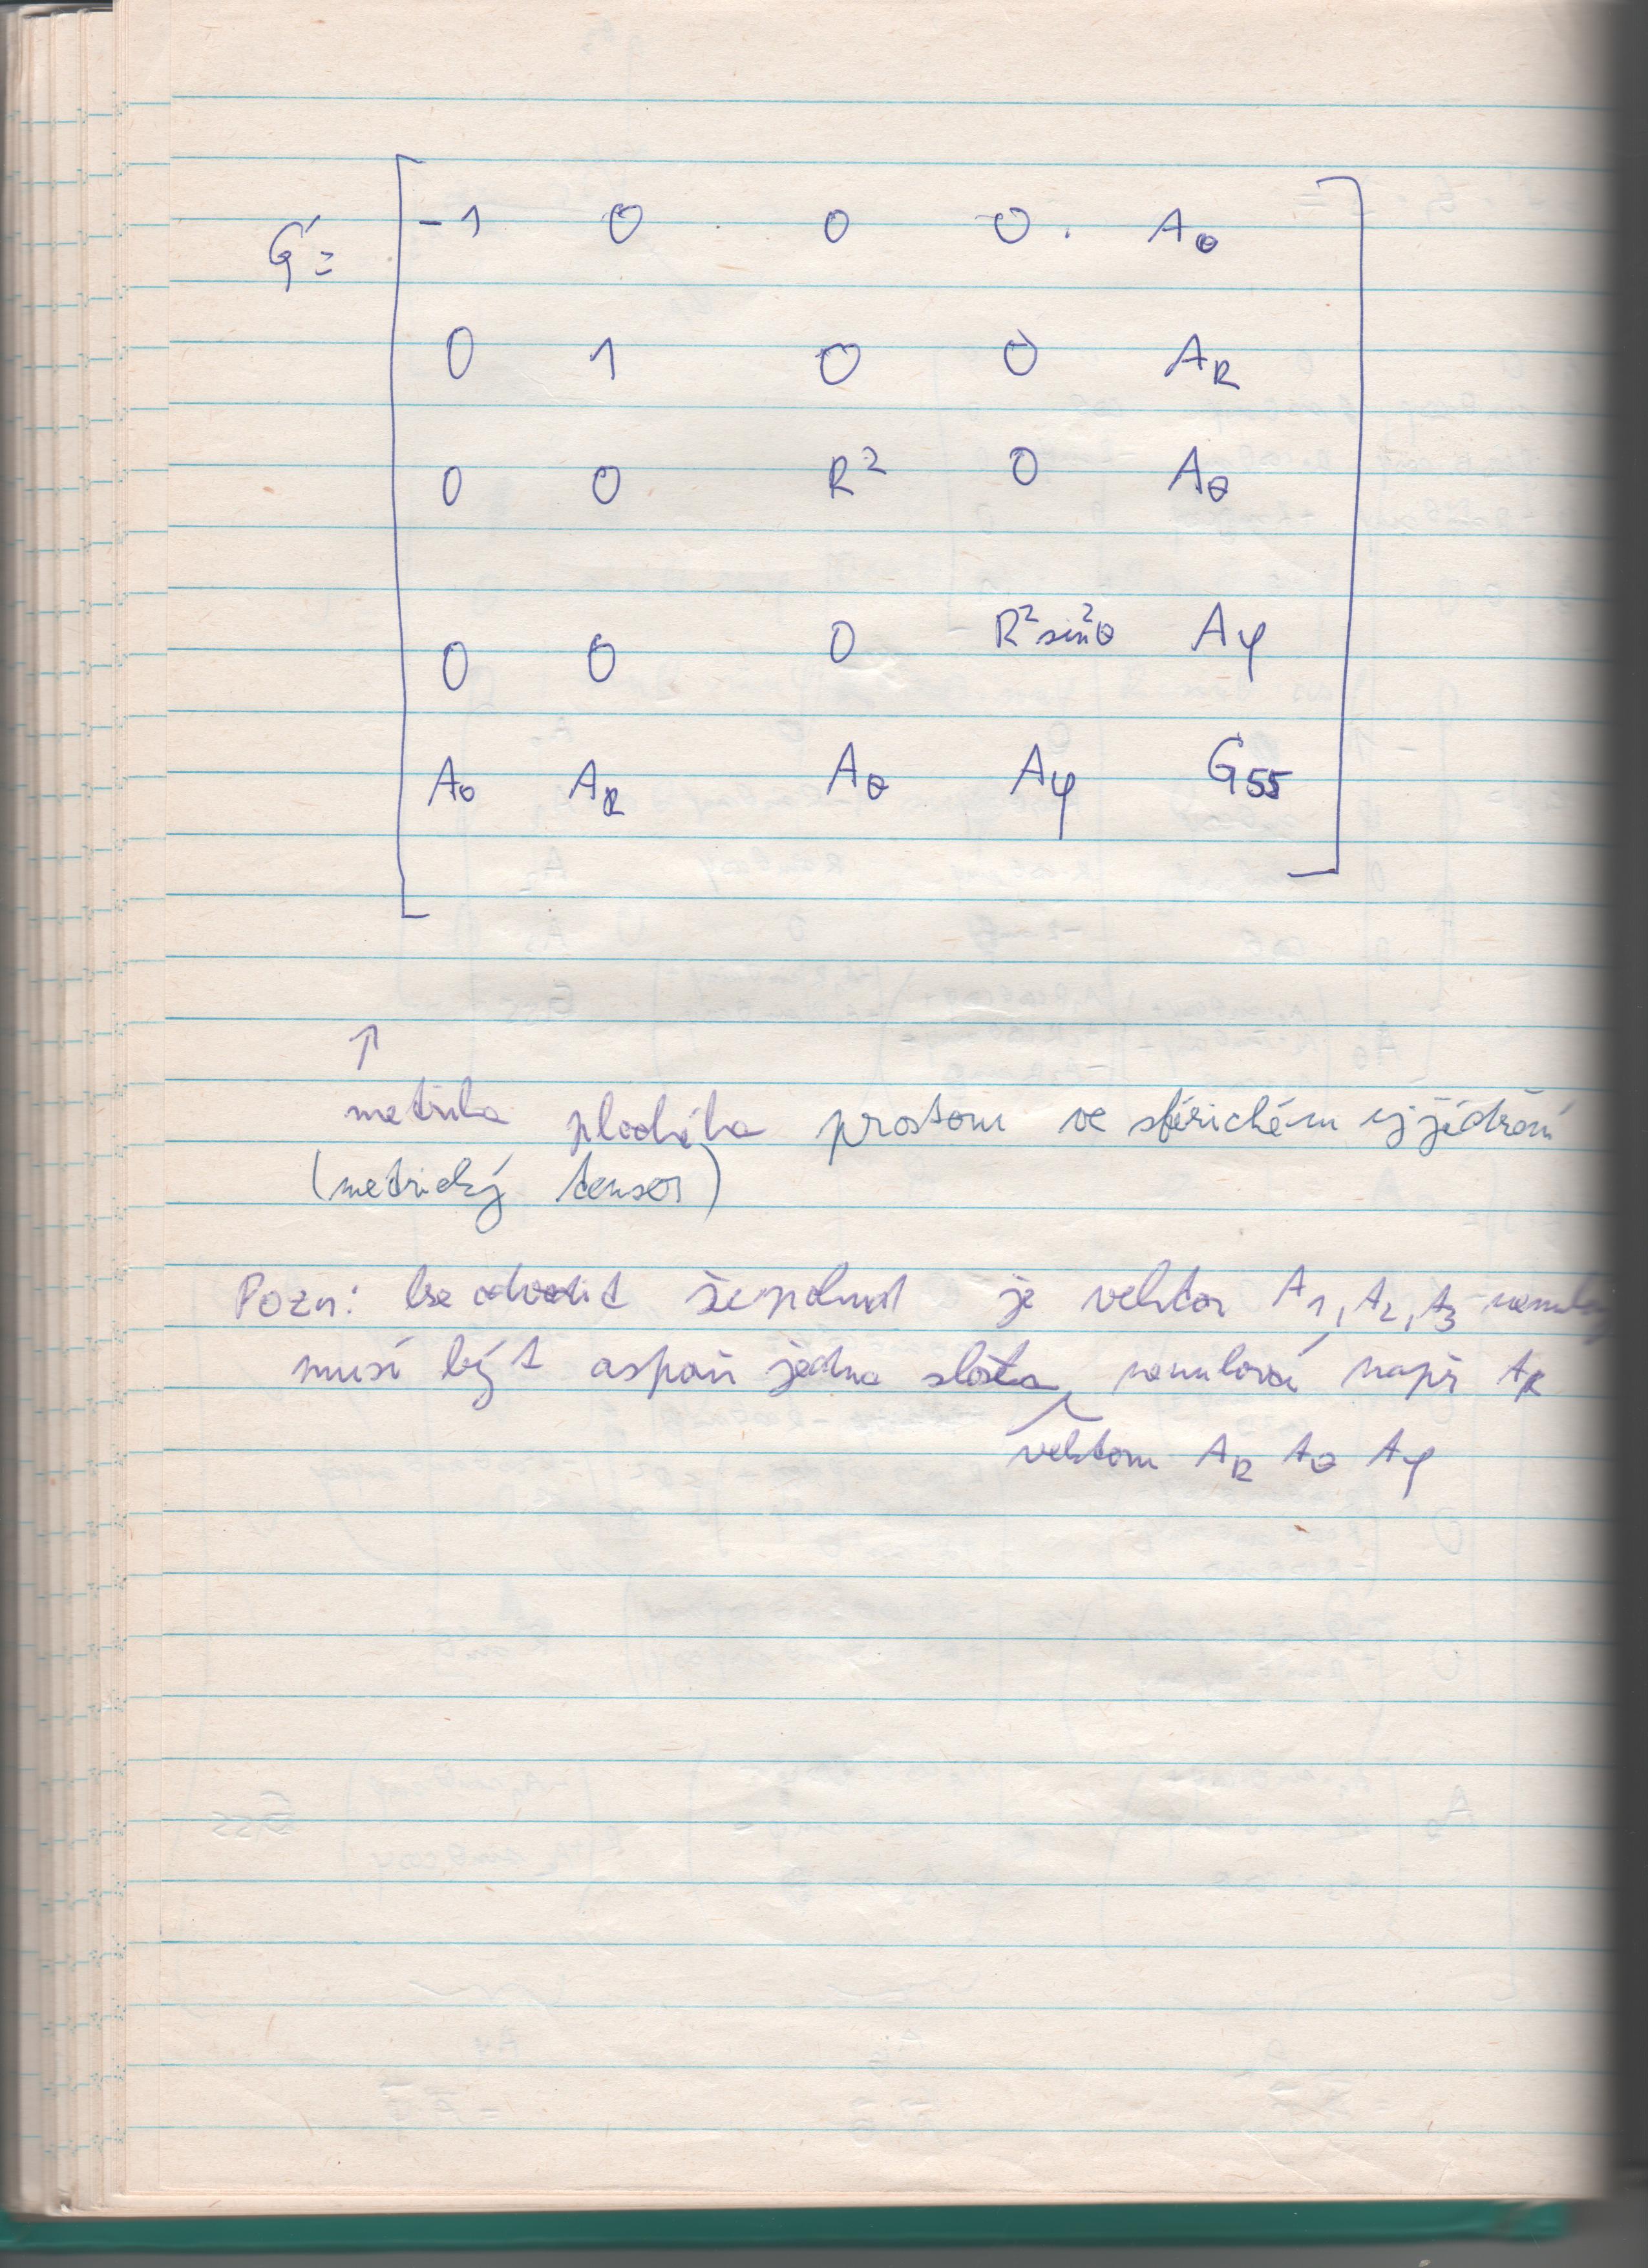 G' =
-1 0 0 0 . A₀
0 1 0 0 A_R
0 0 R² 0 A_θ
0 0 0 R² sin²θ A_φ
A₀ A_R A_θ A_φ G₅₅
↑
metrika plochého prostoru ve sférickém vyjádření
(metrický tensor)
Pozn: lze odvodit že pokud je vektor A₁, A₂, A₃ nenulový
musí být aspoň jedna složka nenulová např A_R
vektoru A_R A_θ A_φ